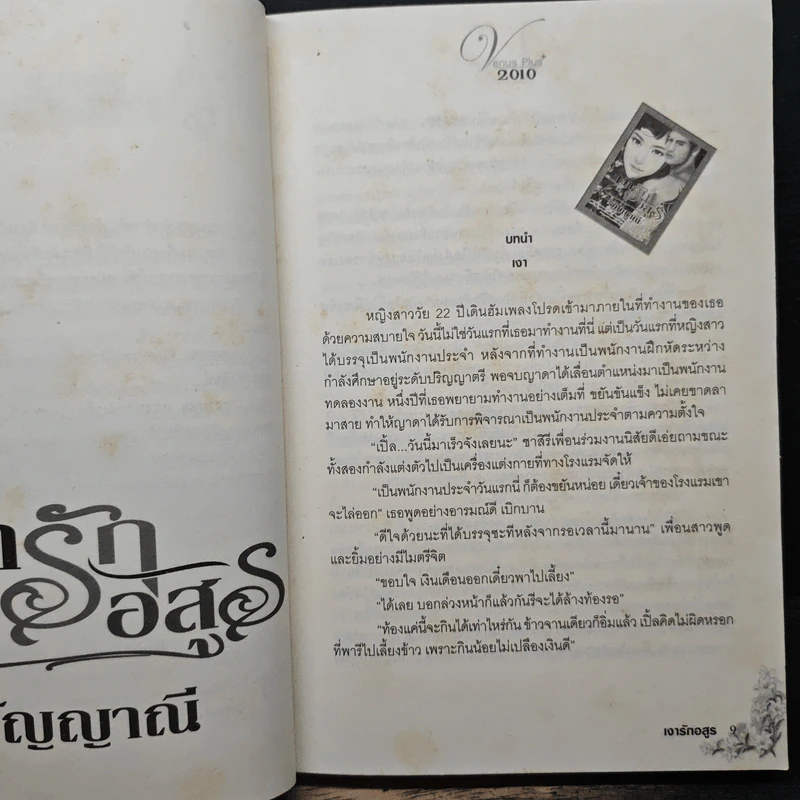 รัก
อสูร
ัญญาณี
Venus Plus
2010
บทนำ
เงา
หญิงสาววัย 22 ปีเดินฮัมเพลงโปรดเข้ามาภายในที่ทำงานของเธอ
ด้วยความสบายใจ วันนี้ไม่ใช่วันแรกที่เธอมาทำงานที่นี่ แต่เป็นวันแรกที่หญิงสาว
ได้บรรจุเป็นพนักงานประจำ หลังจากที่ทำงานเป็นพนักงานฝึกหัดระหว่าง
กำลังศึกษาอยู่ระดับปริญญาตรี พอจบญาดาได้เลื่อนตำแหน่งมาเป็นพนักงาน
ทดลองงาน หนึ่งปีที่เธอพยายามทำงานอย่างเต็มที่ ขยันขันแข็ง ไม่เคยขาดลา
มาสาย ทำให้ญาดาได้รับการพิจารณาเป็นพนักงานประจำตามความตั้งใจ
“เปิ้ล...วันนี้มาเร็วจังเลยนะ” ชาสิรีเพื่อนร่วมงานนิสัยดีเอ่ยถามขณะ
ทั้งสองกำลังแต่งตัวไปเป็นเครื่องแต่งกายที่ทางโรงแรมจัดให้
“เป็นพนักงานประจำวันแรกนี่ ก็ต้องขยันหน่อย เดี๋ยวเจ้าของโรงแรมเขา
จะไล่ออก” เธอพูดอย่างอารมณ์ดี เบิกบาน
“ดีใจด้วยนะที่ได้บรรจุซะทีหลังจากรอเวลานี้มานาน” เพื่อนสาวพูด
และยิ้มอย่างมีไมตรีจิต
“ขอบใจ เงินเดือนออกเดี๋ยวพาไปเลี้ยง”
“ได้เลย บอกล่วงหน้าก็แล้วกันรีจะได้ล้างท้องรอ”
“ท้องแค่นี้จะกินได้เท่าไหร่กัน ข้าวจานเดียวก็อิ่มแล้ว เปิ้ลคิดไม่ผิดหรอก
ที่พารีไปเลี้ยงข้าว เพราะกินน้อยไม่เปลืองเงินดี”
เงารักอสูร 9